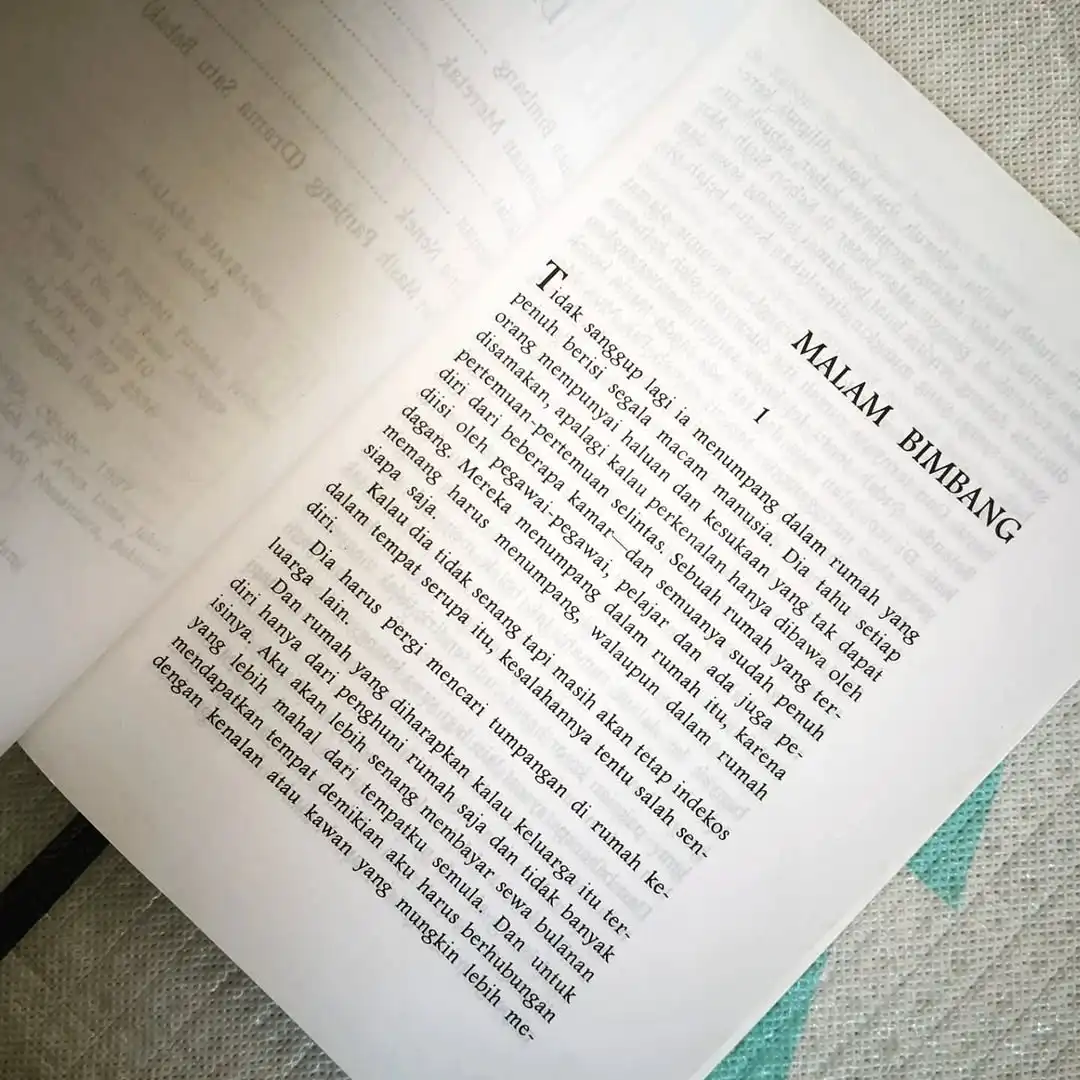 MALAM BIMBANG
1
Tidak sanggup lagi ia menumpang dalam rumah yang
penuh berisi segala macam manusia. Dia tahu setiap
orang mempunyai haluan dan kesukaan yang tak dapat
disamakan, apalagi kalau perkenalan hanya dibawa oleh
pertemuan-pertemuan selintas. Sebuah rumah yang ter-
diri dari beberapa kamar—dan semuanya sudah penuh
diisi oleh pegawai-pegawai, pelajar dan ada juga pe-
dagang. Mereka menumpang dalam rumah itu, karena
memang harus menumpang, walaupun dalam rumah
siapa saja.
Kalau dia tidak senang tapi masih akan tetap indekos
dalam tempat serupa itu, kesalahannya tentu salah sen-
diri.
Dia harus pergi mencari tumpangan di rumah ke-
luarga lain.
Dan rumah yang diharapkan kalau keluarga itu ter-
diri hanya dari penghuni rumah saja dan tidak banyak
isinya. Aku akan lebih senang membayar sewa bulanan
yang lebih mahal dari tempatku semula. Dan untuk
mendapatkan tempat demikian aku harus berhubungan
dengan kenalan atau kawan yang mungkin lebih me-